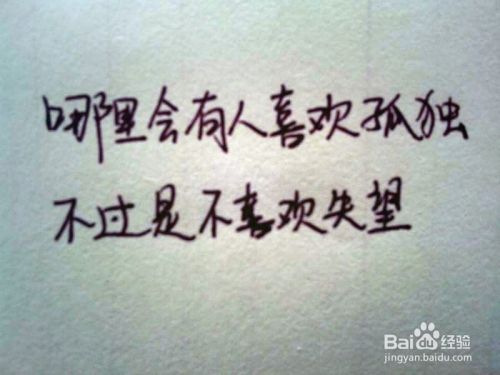 哪里会有人喜欢孤独
不过是不喜欢失望
Baidu经验
jingyan.baidu.com